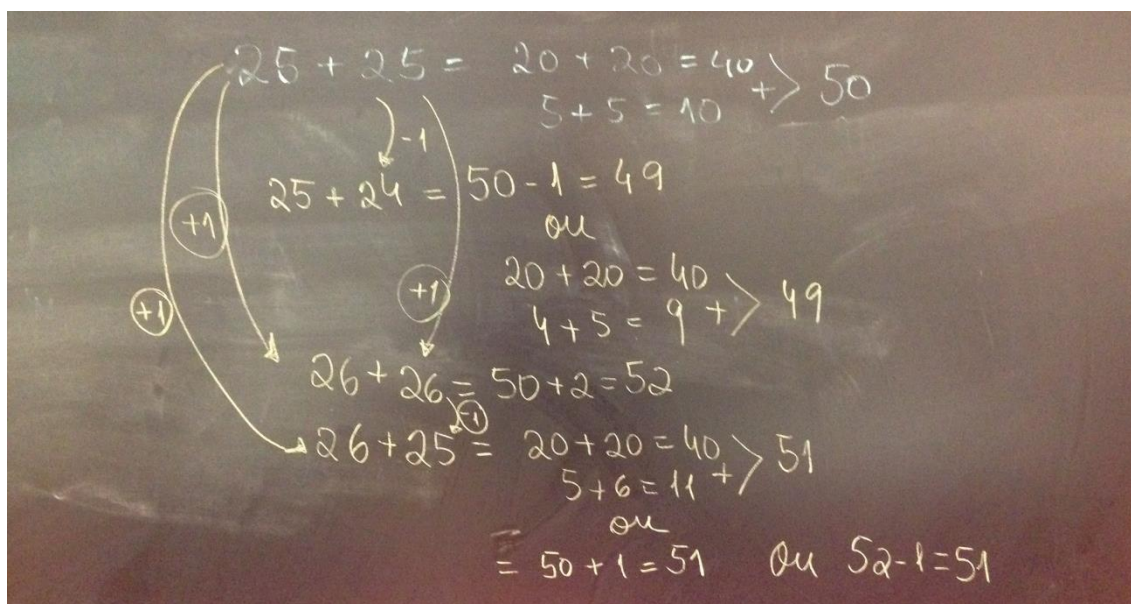 25 + 25 = 20 + 20 = 40 + > 50
5 + 5 = 10
-1
25 + 24 = 50 - 1 = 49
ou
+1
20 + 20 = 40
+1
+1
4 + 5 = 9 + > 49
26 + 26 = 50 + 2 = 52
-1
26 + 25 = 20 + 20 = 40
5 + 6 = 11 + > 51
ou
= 50 + 1 = 51 ou 52 - 1 = 51